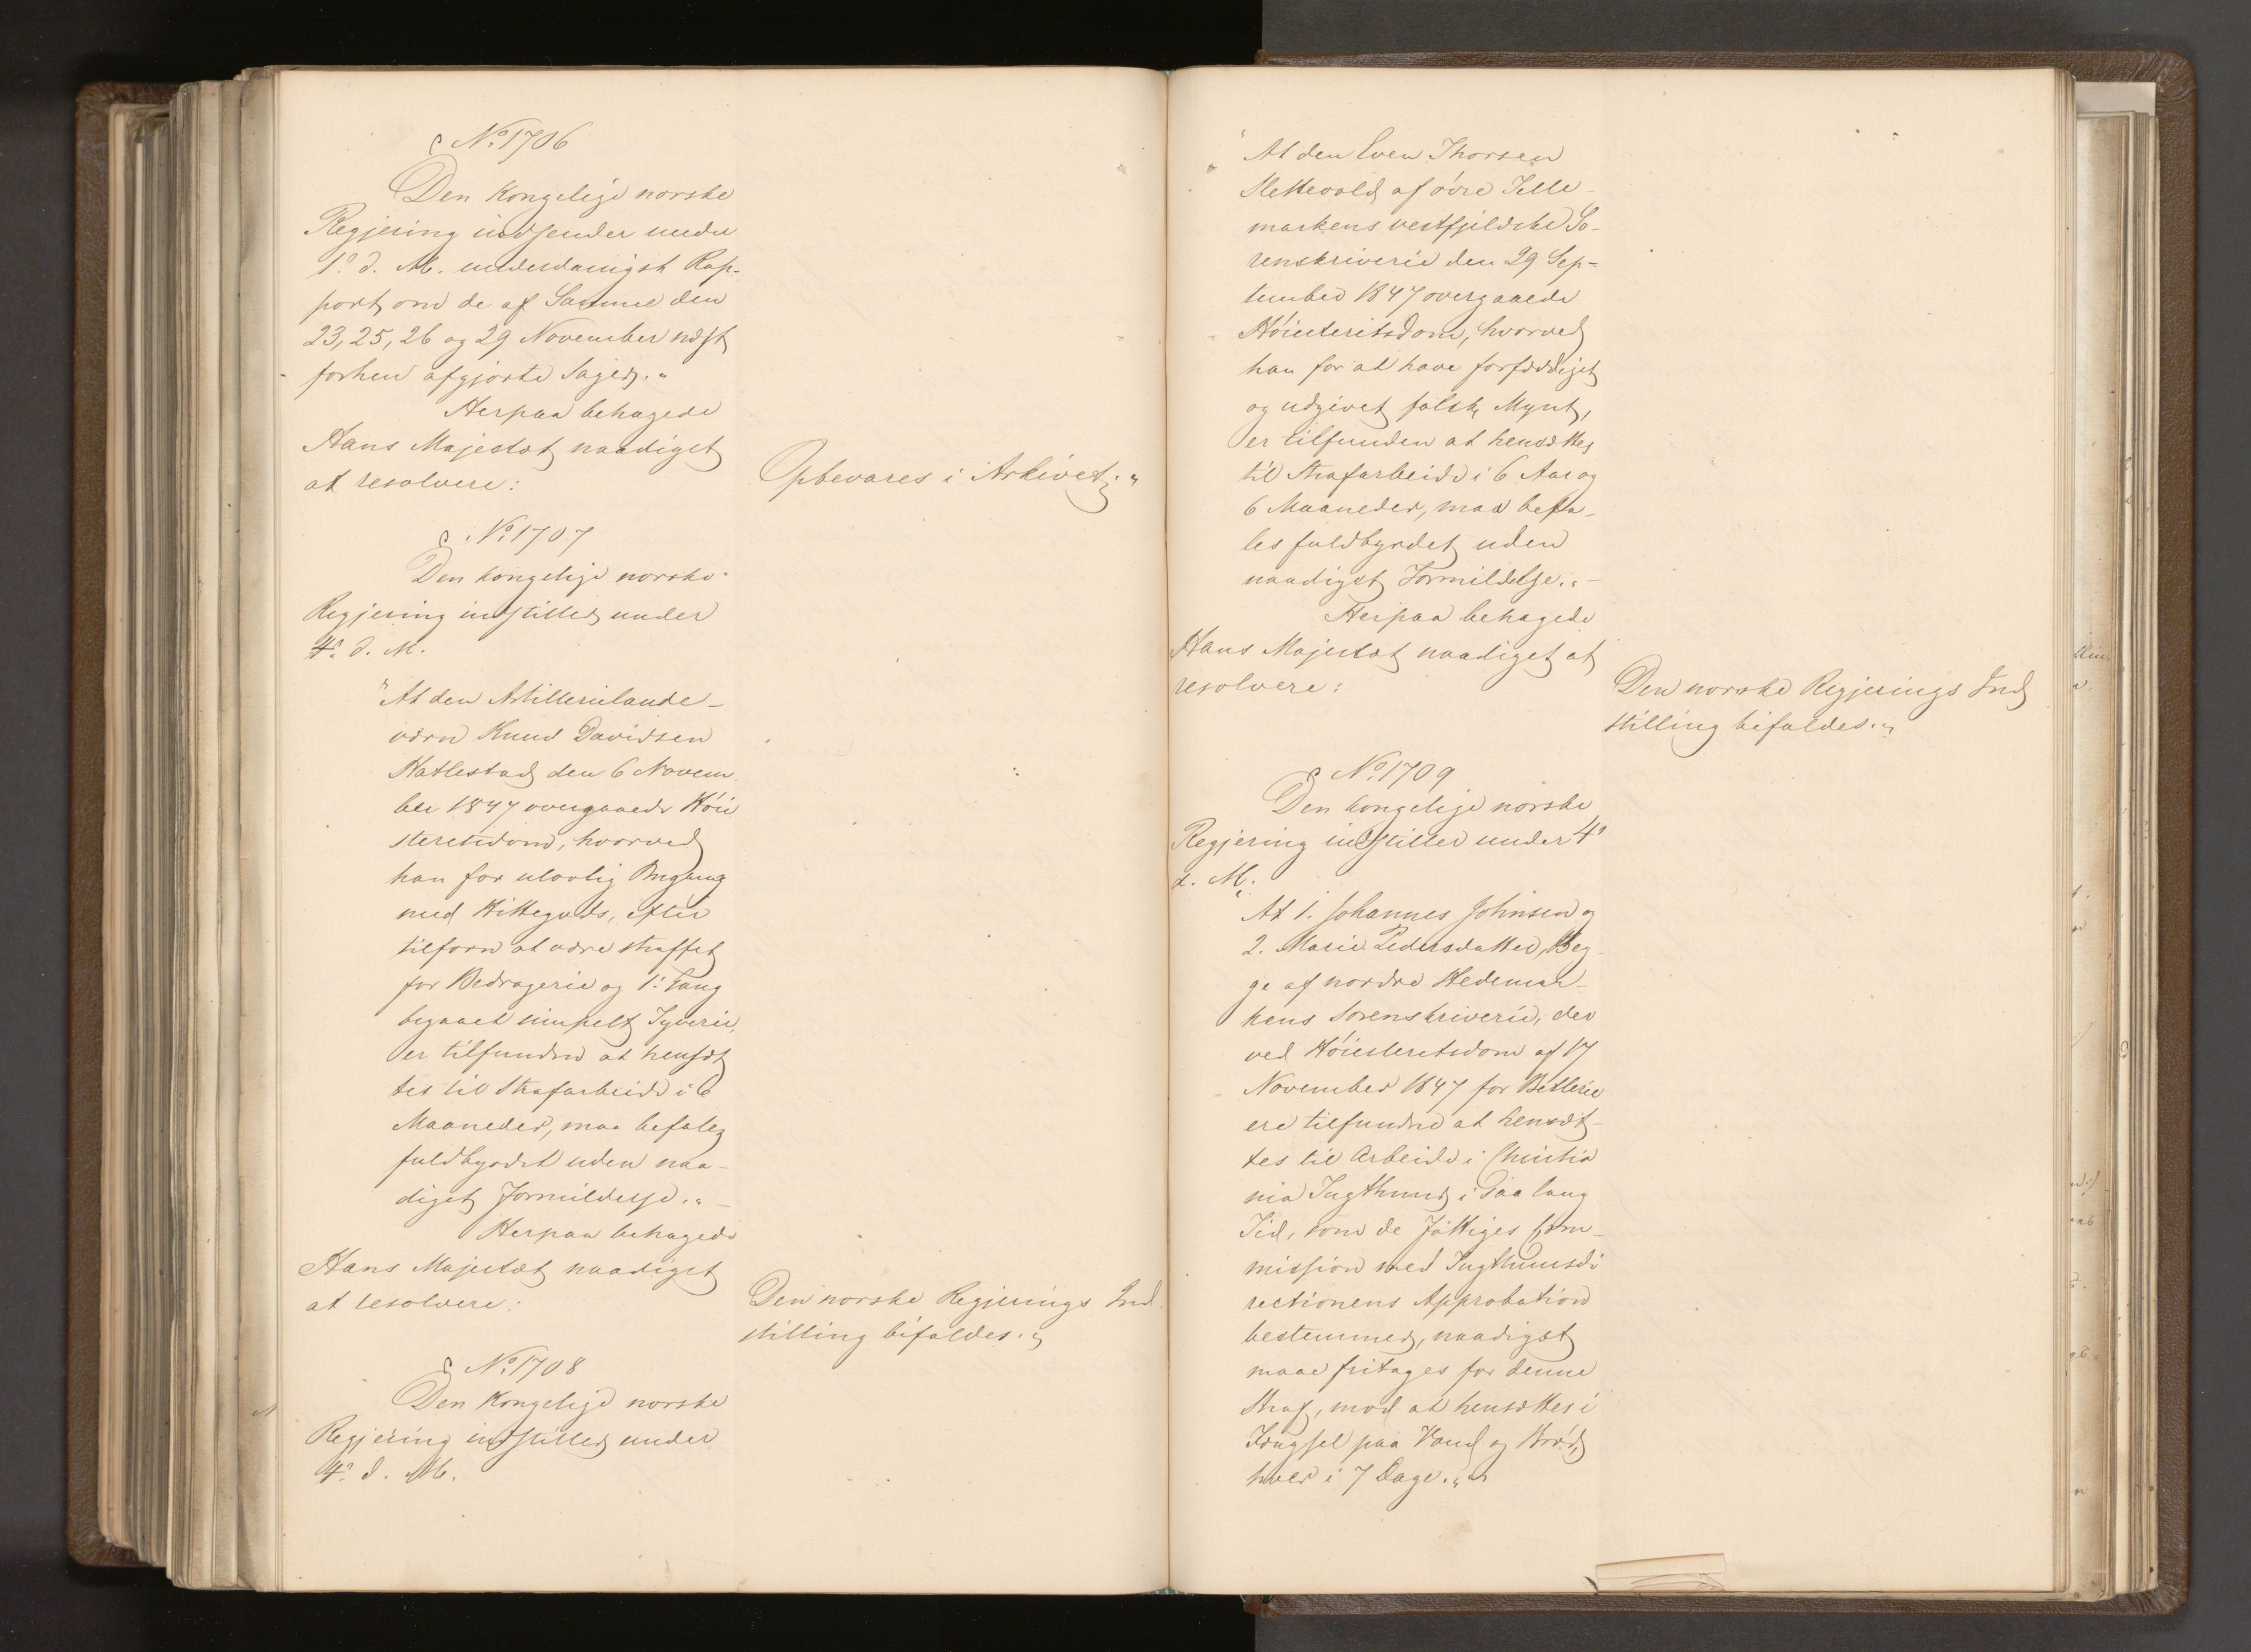 No. 1706
Den Kongelige norske
Regjering indsender under
1ste d. M. underdanigst Rap-
port om de af Samme den
23, 25, 26 og 29 November næst
forhen afgjorte Sager."
Herpaa behagede
Hans Majestæt naadigst
at resolvere:
Opbevares i Arkivet."
No. 1707
Den kongelige norske
Regjering indstiller under
4de d. M.
"At den Artillerielande-
værn Knud Davidsen
Hatlestad den 6 Novem-
ber 1847 overgaaede Höie
steretsdom, hvorved
han for ulovlig Omgang
med Hittegods, efter
tilforn at være straffet
for Bedragerie og 1. Gang
begaaet simpelt Tyverie,
er tilfunden at hensæt
tes til Strafarbeide i 6
Maaneder, maa befales
fuldbyrdet uden naa-
digst Formildelse."
Herpaa behagede
Hans Majestæt naadigst
at resolvere:
Den norske Regjerings Ind-
stilling bifaldes."
No. 1708
Den Kongelige norske
Regjering indstiller under
4de d. M.
"At den Even Thorsen
Slettevold af övre Telle-
markens vestfjeldske So-
renskriverie den 29 Sep-
tember 1847 overgaaede
Höiesteretsdom, hvorved
han for at have forfærdiget
og udgivet falsk Mynt,
er tilfunden at hensættes
til Strafarbeide i 6 Aar og
6 Maaneder, maa befa-
les fuldbyrdet uden
naadigst Formildelse."
Herpaa behagede
Hans Majestæt naadigst at
resolvere:
Den norske Regjerings Ind
stilling bifaldes."
No. 1709
Den kongelige norske
Regjering indstiller under 4de
d. M.
"At 1. Johannes Johnsen og
2. Marie Pedersdatter, Beg-
ge af nordre Hedemar-
kens Sorenskriverie, der
ved Höiesteretsdom af 17
November 1847 for Betlerie
ere tilfundne at hensæt-
tes til Arbeide i Christia
nia Tugthuus i saa lang
Tid, som de Fattiges Com-
mission med Tugthuusdi
rectionens Approbation
bestemmer, naadigst
maae fritages for denne
Straf, mod at hensættes i
Fængsel paa Vand og Bröd,
hver i 7 Dage."